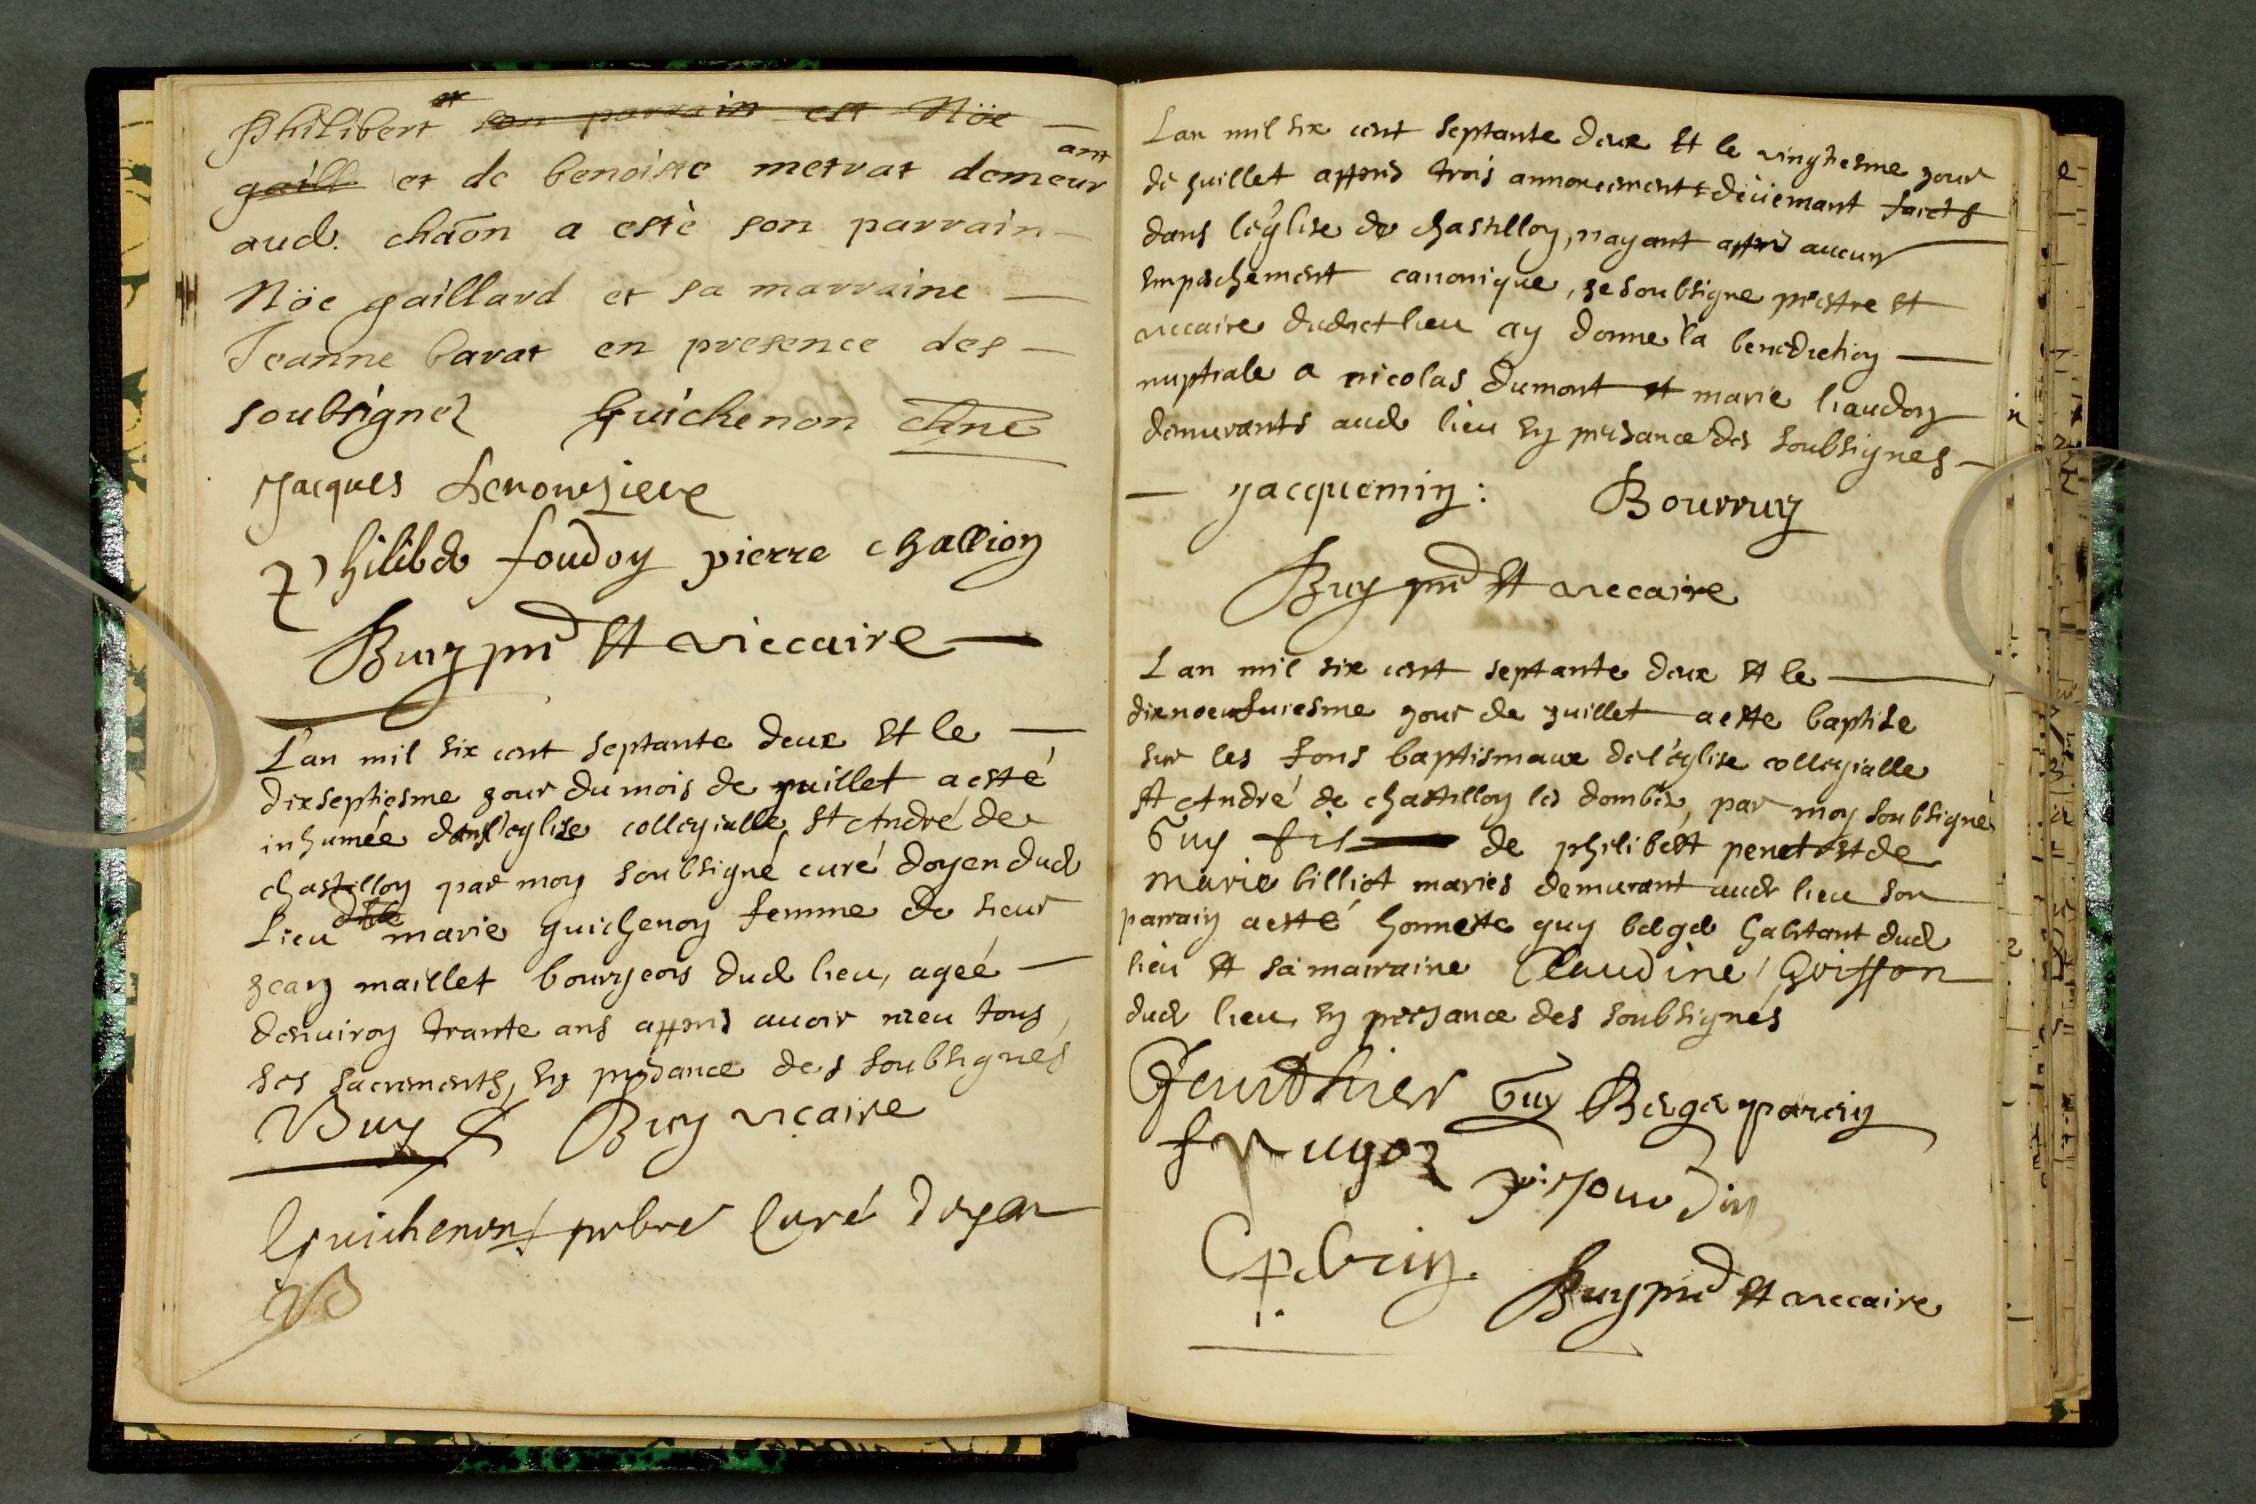 Philibert et son parrain est Nöe
gaill et de benoiste metrat demeurant
aud. chāon a estè son parrain
Nöe gaillard et sa marraine
Jeanne barat en presence des
soubsignez Guichenon chne
Jacques
Philib foudoy pierre challion
Buy pre et viccaire
L'an mil six cent septante deux et le
dixseptiesme jour du mois de juillet a esté
inhumée dans l'eglise collegialle st André de
chastillon par moy soubsigné curé doyen dud
Lieu dlle marie guichenon femme de sieur
jean maillet bourgeois dud lieu, ageé
denviron trante ans appres avoir receu tous
ses sacrements, en presance des soubsignés
Buy Buy vicaire
Guichenon prbre Curé Doyen
Lan mil six cent septante deux et le vingtiesme jour
de juillet appres trois annoncements deüemant faicts
dans l'eglise de chastillon, n'ayant appris aucun
empeschement canonique, je soubsigne prestre et
viccaire dudict lieu ay donne la benediction
nuptiale a nicolas dumont et marie liaudon
demurants aud lieu en presance des soubsignes
jacquemin: Bourruy
Buy pre et viccaire
Lan mil six cent septante deux et le
dixnoeufviesme jour de juillet a este baptise
sur les fons baptismaux de l'église collegialle
st André de chastillon les dombes, par moy soubsigné
Guy fis de philibert penet et de
marie billiot mariés demurant aud lieu son
parrain a esté honneste guy belge habitant dud
lieu et sa marraine Claudine Goiffon
dud lieu, en presance des soubsignés
Gauthier Guy Berge parein
Buy pre et viccaire